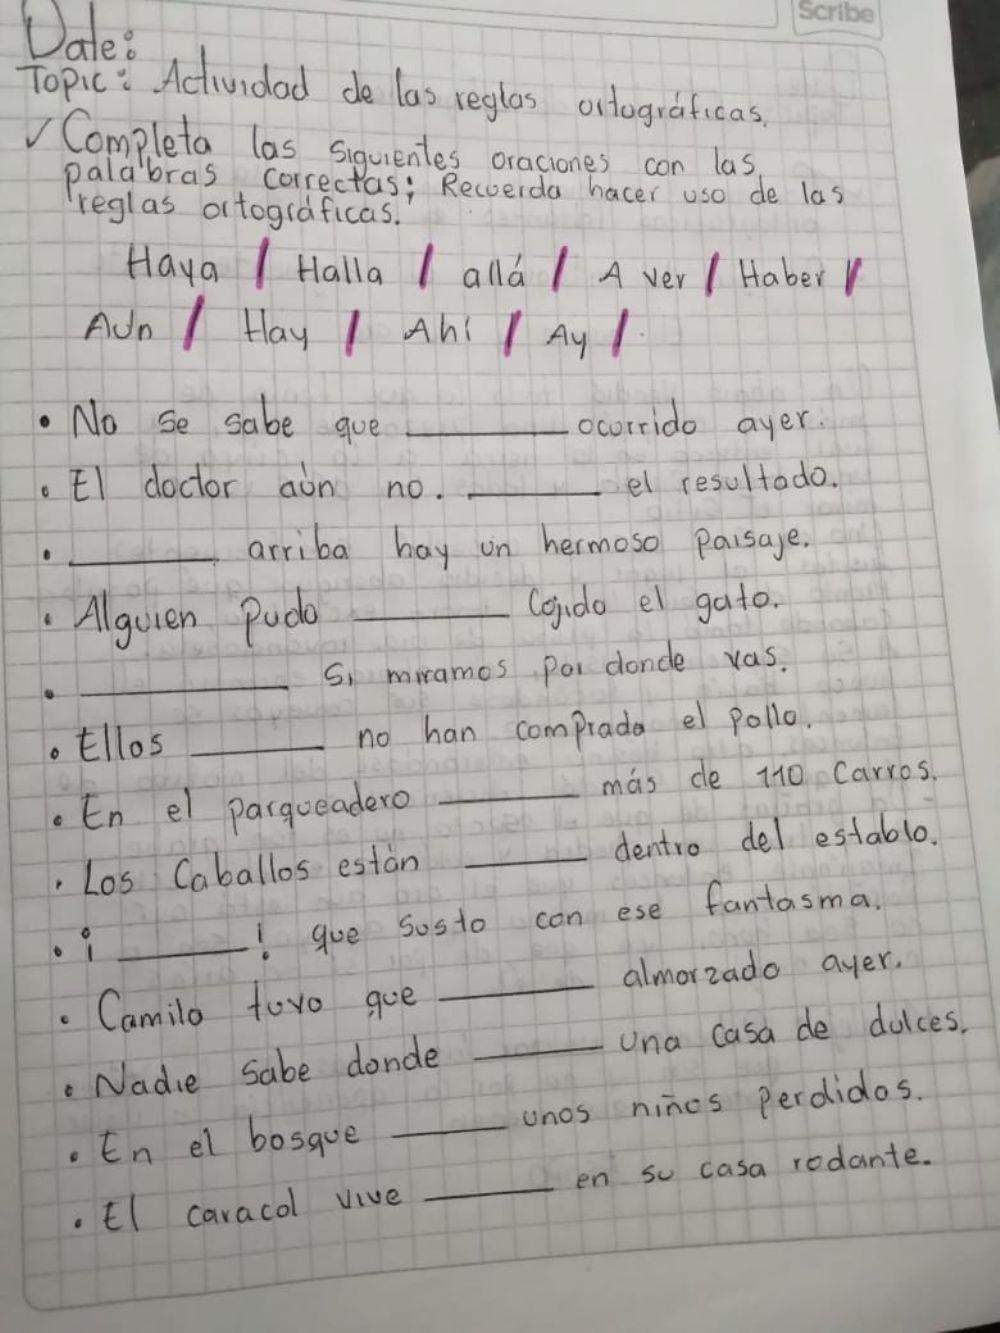 Scribe
Date:
Topic: Actividad de las reglas ortográficas.
✓ Completa las siguientes oraciones con las
palabras correctas; Recuerda hacer uso de las
reglas ortográficas.
Haya / Halla / allá / A ver / Haber /
Aún / Hay / Ahí / Ay /.
• No se sabe que ________ ocurrido ayer.
• El doctor aún no. ________ el resultado.
• ________ arriba hay un hermoso paisaje.
• Alguien pudo ________ Cojido el gato.
• ________ Si miramos por donde vas.
• Ellos ________ no han comprado el pollo.
• En el parqueadero ________ más de 110 Carros.
• Los Caballos están ________ dentro del establo.
• ¡ ________ ! que susto con ese fantasma.
• Camilo tuvo que ________ almorzado ayer.
• Nadie sabe donde ________ una casa de dulces.
• En el bosque ________ unos niños perdidos.
• El caracol vive ________ en su casa rodante.